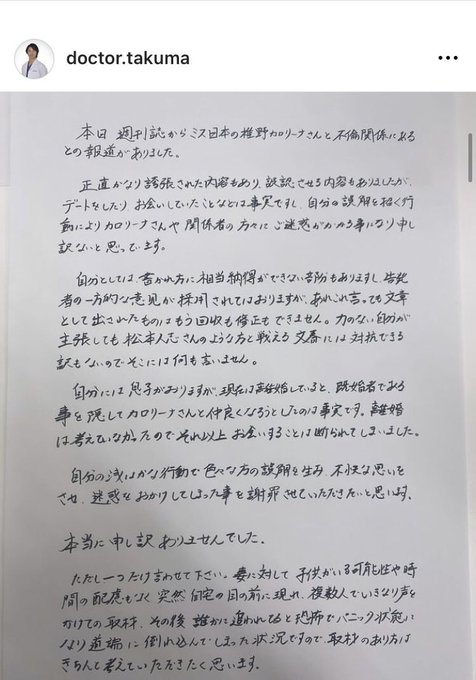 doctor.takuma
本日 週刊誌からミス日本の椎野カロリーナさんと不倫関係にある
との報道がありました。
正直かなり誇張された内容もあり、誤認させる内容もありましたが、
デートをしたりお会いしていたことなどは事実ですし、自分の誤解を招く行
動によりカロリーナさんや関係者の方々にご迷惑がかかる事になり申し
訳ないと思っています。
自分としては、書かれ方に相当納得ができない部分もありますし、告発
者の一方的な意見が採用されてはおりますが、あれこれ言っても文章
として出されたものはもう回収も修正もできません。力のない自分が
主張しても松本人志さんのような方と戦える文春には対抗できる
訳もないのでそこには何も言いません。
自分には息子がおりますが、現在は離婚していると、既婚者である
事を隠してカロリーナさんと仲良くなろうとしたのは事実です。離婚
は考えていなかったのでそれ以上お会いすることは断られてしまいました。
自分の浅はかな行動で色々な方の誤解を生み 不快な思いを
させ、迷惑をおかけしてしまった事を謝罪させていただきたいと思います。
本当に申し訳ありませんでした。
ただし一つだけ言わせて下さい。妻に対して子供がいる可能性や時
間の配慮もなく突然自宅の目の前に現れ、複数人でいきなり声を
かけての取材、その後誰かに追われてると恐怖でパニック状態に
なり道端に倒れ込んでしまった状況ですので、取材のあり方は
きちんと考えていただきたく思います。